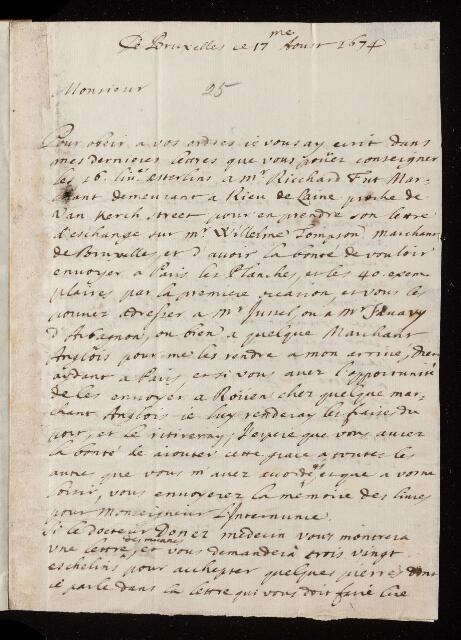 De Bruxelles ce 17me Aoust 1674
Monsieur 25
Pour obeir a vos ordres ie vous ay ecrit dans
mes dernieres lettres que vous pouez consigner
les 16 liu. esterlins a mr Ricchard Fut Mar-
chant demeurant a Rieu de Caine proche de
Van Kerch street pour en prendre son lettre
d'eschange sur mr Willeime Tompson marchant
de Bruxelles, et d'avoir la bonté de vouloir
envoyer a Paris les Planches, et les 40 exem-
plaires par la premiere ocasion, et vous les
pouuez adresser a mr Justel, ou a mr
d'Aubagnon, ou bien a quelque Marchant
Anglois pour me les rendre a mon arriue, Dieu
aydant a Paris, et si vous auez l'opportunité
de les envoyer a Rouen chez quelque mar-
chant Anglois ie luy renderay les fraix du
port, et le retireray; J'espere que vous aurez
la bonté de aiouter cette grace a toutes les
autres que vous m'avez et que a votre
loisir, vous envoyerez la memoire des liures
pour Monseigneur L'Internunce.
Si le docteur Donez medecin vous montrera
vne lettre, et vous demandera trois vingt
eschelins pour achepter quelques pierres dont
ie parle dans la lettre qui vous doit faire lire